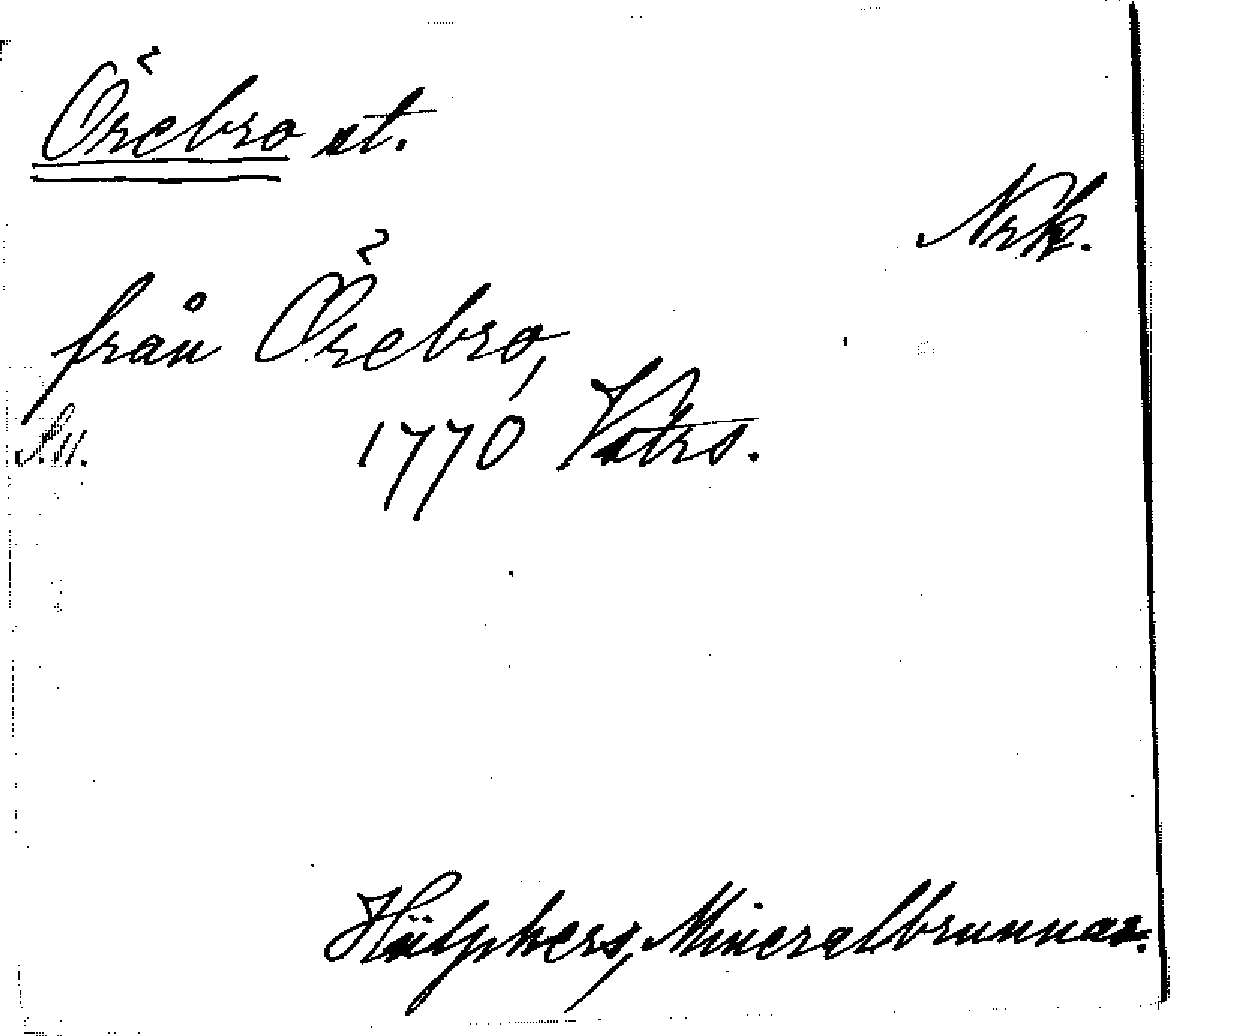 Örebro st.
Nrk.
från Örebro,
1770 Vstrs.
Hülphers, Mineralbrunnar.